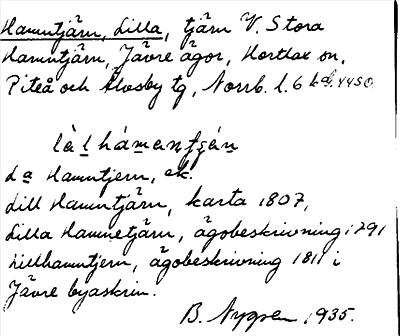 Hamntjärn, Lilla, tjärn V. Stora
Hamntjärn, Jävre ägor, Hortlax sn,
Piteå och Älvsby tg, Norrb. l. 6
Hamntjern, ek.
Lill Hamntjärn, karta 1807,
Lilla Hamnetjärn, ägobeskrivning 1791
Lillhamntjern, ägobeskrivning 1811 i
Jävre byaskrin.
B. Nygren 1935.